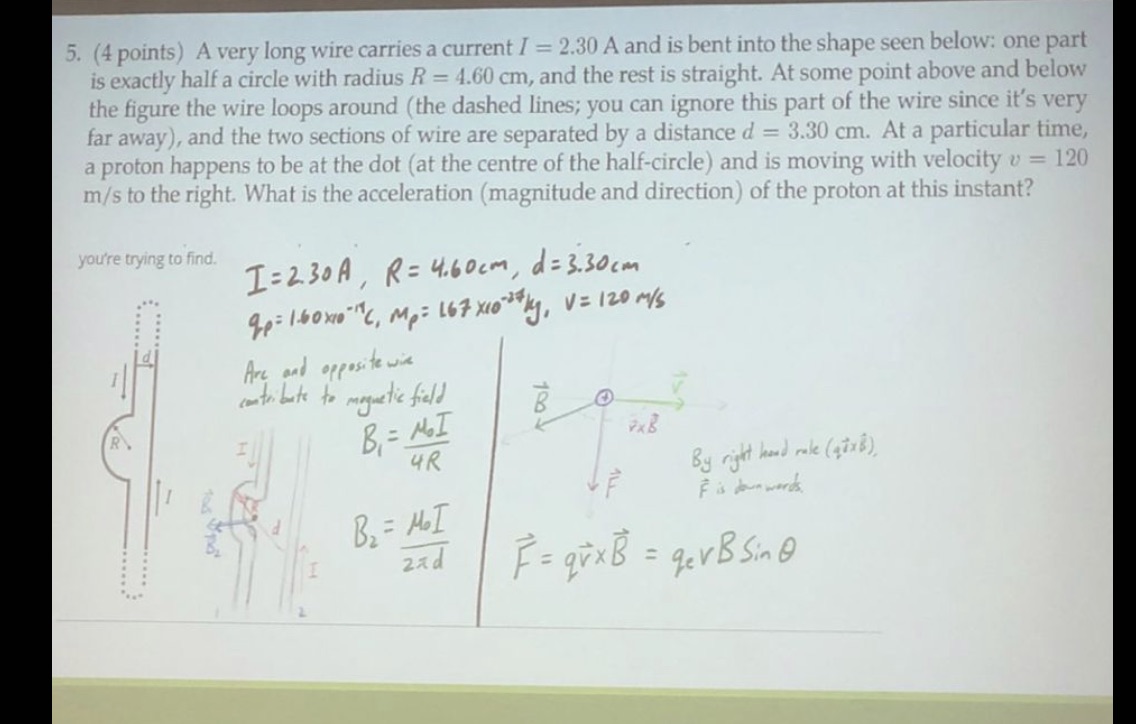 5. (4 points) A very long wire carries a current I = 2.30 A and is bent into the shape seen below: one part
is exactly half a circle with radius R = 4.60 cm, and the rest is straight. At some point above and below
the figure the wire loops around (the dashed lines; you can ignore this part of the wire since it's very
far away), and the two sections of wire are separated by a distance d = 3.30 cm. At a particular time,
a proton happens to be at the dot (at the centre of the half-circle) and is moving with velocity v = 120
m/s to the right. What is the acceleration (magnitude and direction) of the proton at this instant?
you're trying to find.
I = 2.30 A, R = 4.60 cm, d = 3.30 cm
qₚ = 1.60 x10⁻¹⁹C, Mₚ = 1.67 x10⁻²⁷kg, V = 120 m/s
Arc and opposite wire
contribute to magnetic field
B₁ = μ₀I
4R
B₂ = μ₀I
2πd
d
I
R
I
I
R
d
I
1
2
B⃗
+
V⃗
v⃗xB⃗
F⃗
By right hand rule (qv⃗xB⃗),
F⃗ is downwards.
F⃗ = qv⃗xB⃗ = qₑvB Sin θ